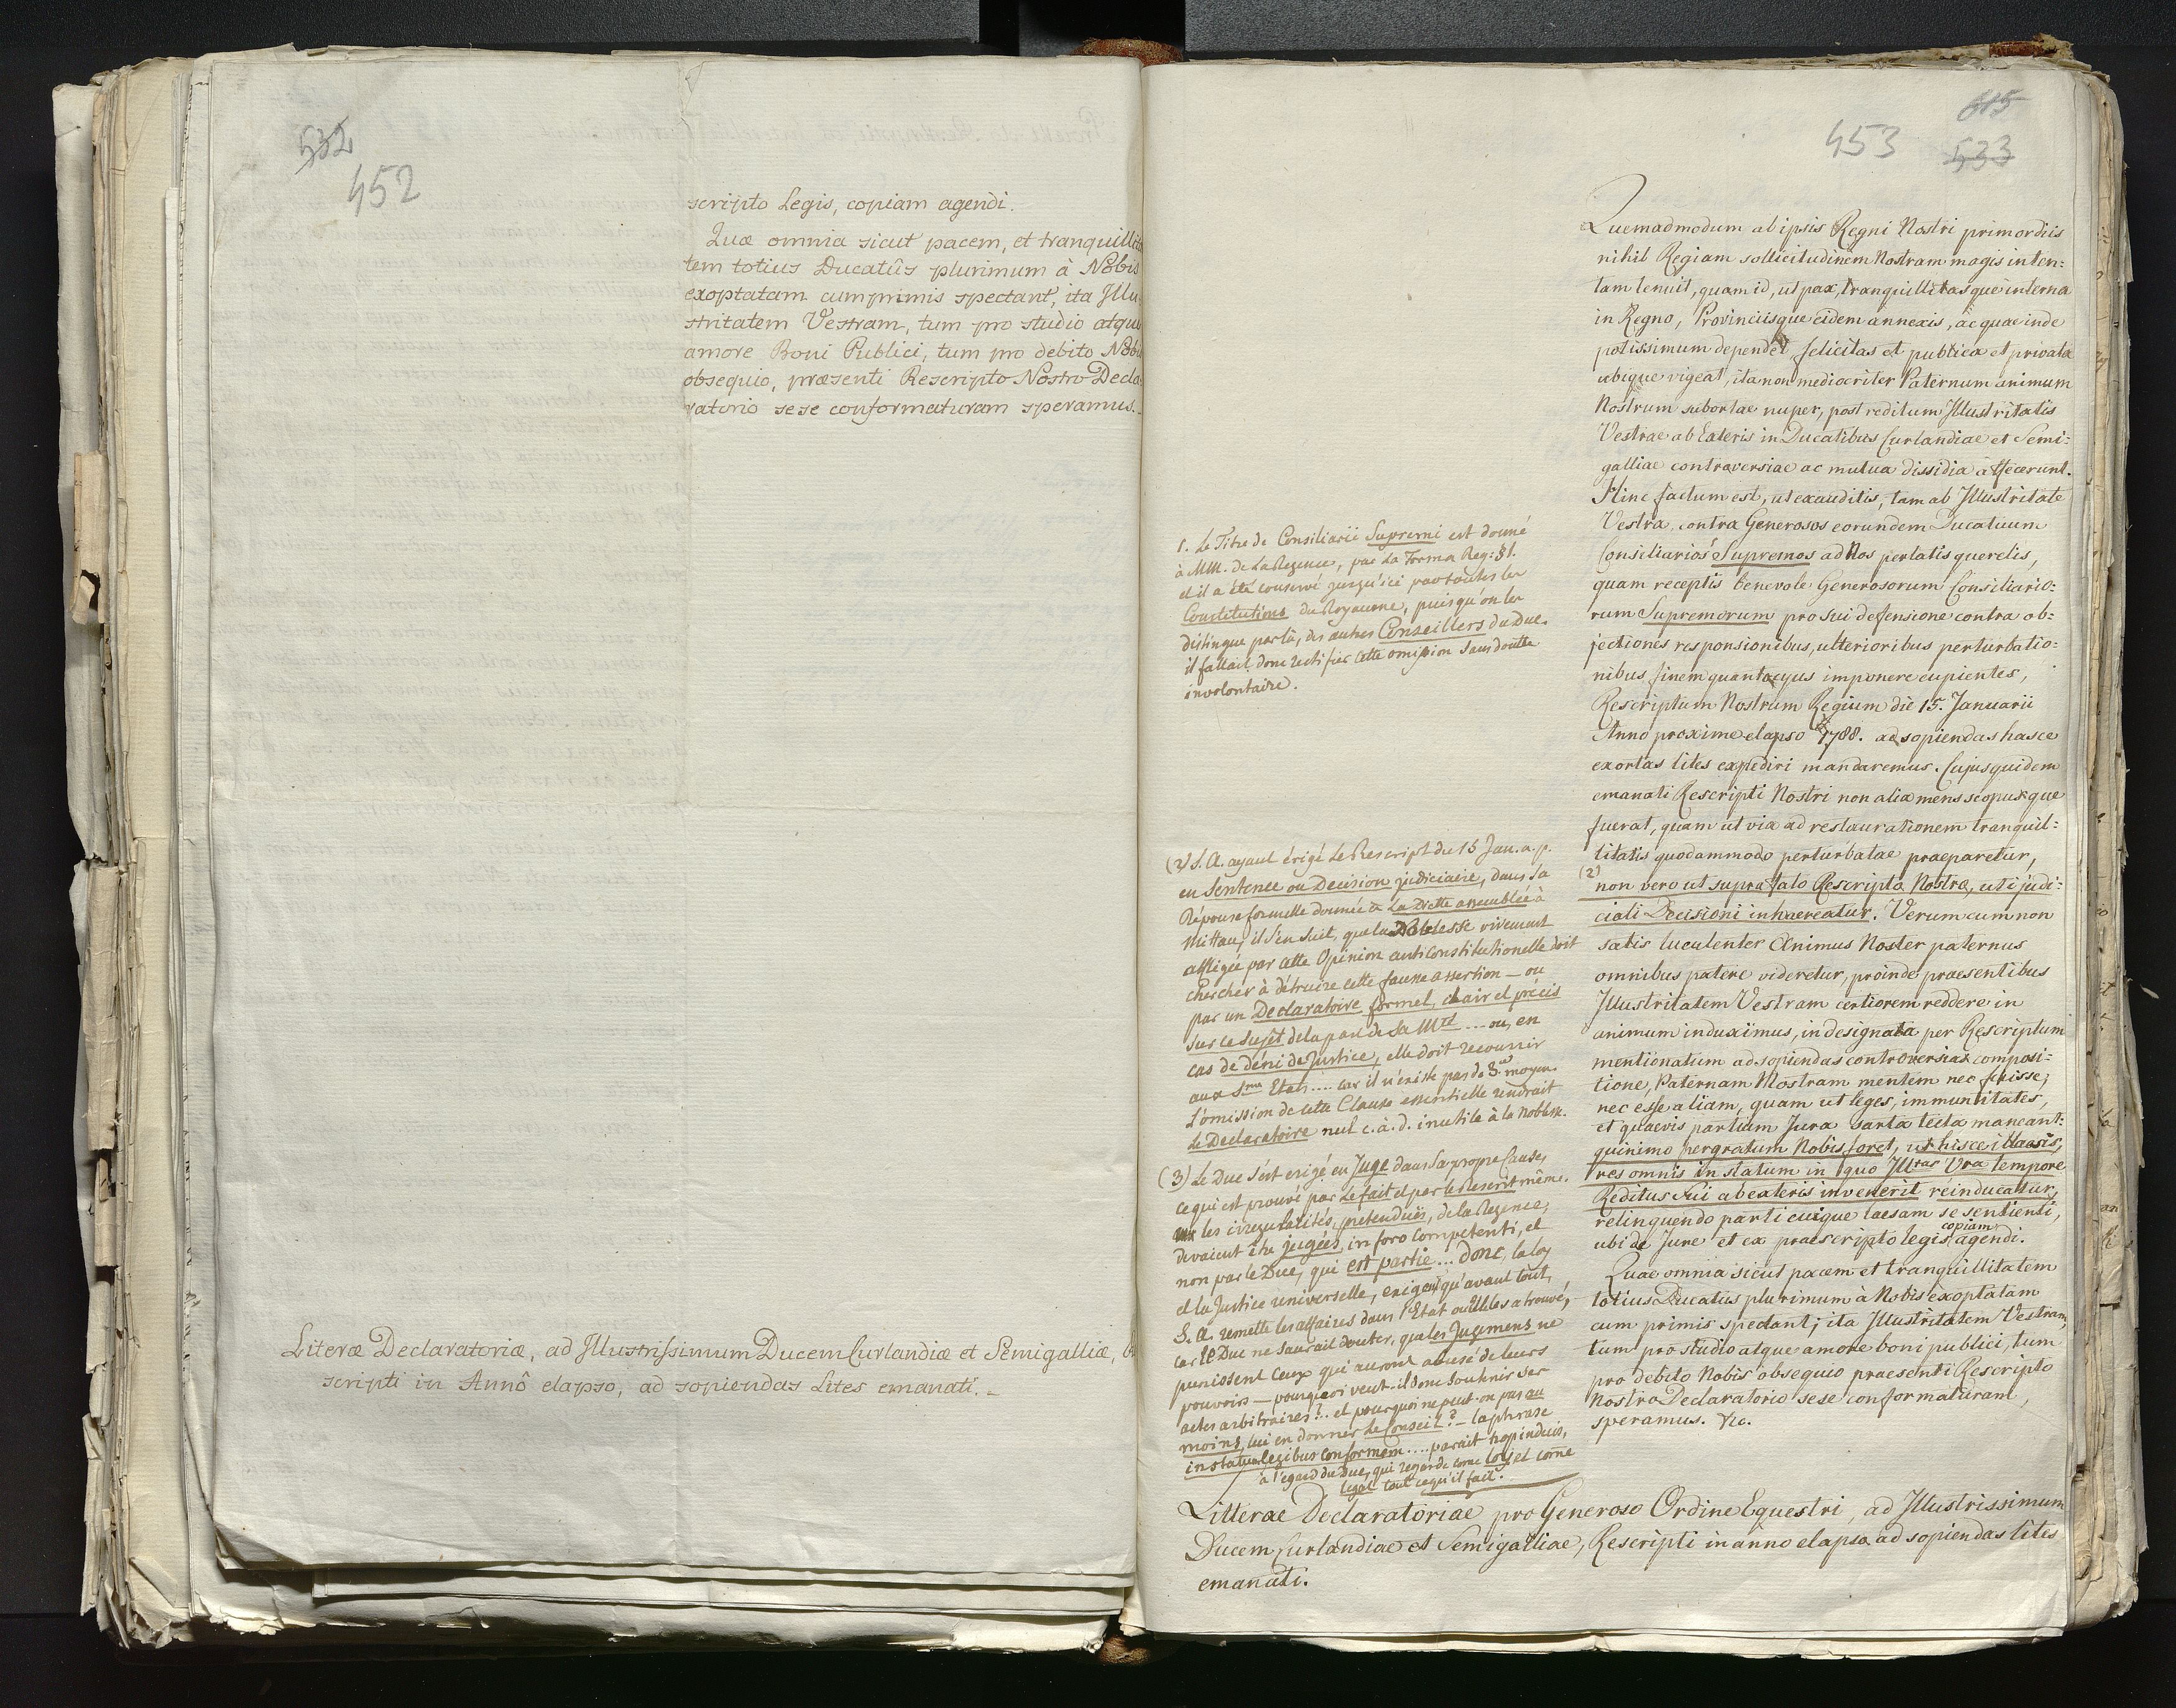 532
452
scripto Legis, copiam agendi.
Quæ omnia sicut pacem, et tranquillita
tem totius Ducatûs plurimum à Nobis
exoptatam cumprimis spectant, ita Illu
stritatem Vestram, tum pro studio atque
amore Boni Publici, tum pro debito Nobis
obsequio, præsenti Rescripto Nostro Decla
ratorio sese conformaturam speramus.
Literæ Declaratoriæ, ad Illustrissimum Ducem Curlandiæ et Semigalliæ,
scripti in Annô elapso, ad sopiendas Lites emanati.
615
453 533
1. Le Titre de Consiliarii Supremi est donné
à MM. de La Regence, par La Forma Reg: §1.
et il a été conservé jusqu'ici par toutes les
Constitutions du Royaume, puisqu'on les
distingue par là, des autres Conseillers du Duc.
il fallait donc rectifier cette omission sans doute
involontaire.
(2) S. A. ayant érigé le Rescript du 15 Jan. a. p.
en Sentence ou Decision judiciaire, dans sa
Réponse formelle donnée à La Diette assemblée à
Mittau, il s'en suit, que la Noblesse vivement
affligée par cette Opinion anticonstitutionelle doit
chercher à détruire cette fausse assertion — ou
par un Declaratoire formel, clair et précis
sur ce sujet de la part de Sa Mté ... ou, en
cas de déni de Justice, elle doit recourrir
aux S.mes Etats .... car il n'existe pas de 3.me moyen.
L'omission de cette Clause essentielle rendrait
Le Declaratoire nul c. à. d. inutile à la Noblesse.
(3) Le Duc s'est erigé en Juge dans sa propre Cause,
ce qui est prouvé par le fait et par le Rescrit même.
les irregularités, pretenduës, de la Regence,
devaient être jugées, in foro competenti, et
non par le Duc, qui est partie ... Donc, la loy
et la Justice universelle, exigent qu'avant tout,
S. A. remette les affaires dans l'Etat où Elle les a trouvé,
car le Duc ne saurait douter, que les Jugemens ne
punissent ceux qui auront abusé de leurs
pouvoirs — pourquoi veut-il donc soutenir ses
actes arbitraires?.. et pourquoi ne peut-on pas au
moins, lui en donner le Conseil? — la phrase
in statum legibus conformem .... parait trop indecis,
à l'egard du Duc, qui regarde come loy et come
legal tout ce qu'il fait.
Quemadmodum ab ipsis Regni Nostri primordiis
nihil Regiam sollicitudinem Nostram magis inten:
tam tenuit, quam id, ut pax, tranquillitasque interna
in Regno, Provinciisque eidem annexis, ac quae inde
potissimum dependet felicitas et publica et privata
ubique vigeat, ita non mediocriter Paternum animum
Nostrum subortae nuper, post reditum Illustritatis
Vestrae ab Exteris in Ducatibus Curlandiae et Semi:
galliae controversiae ac mutua dissidia affecerunt.
Hinc factum est, ut exauditis, tam ab Illustritate
Vestra contra Generosos eorundem Ducatuum
Consiliarios Supremos ad Nos perlatis querelis,
quam receptis benevole Generosorum Consiliario:
rum Supremorum pro sui defensione contra ob:
jectiones responsionibus, ulterioribus perturbatio:
nibus finem quantocyus imponere cupientes,
Rescriptum Nostrum Regium die 15. Januarii
Anno proxime elapso 1788. ad sopiendas hasce
exortas lites expediri mandaremus. Cujus quidem
emanati Rescripti Nostri non alia mens scopusque
fuerat, quam ut via ad restaurationem tranquil:
litatis quodammodo perturbatae praeparetur,
(2) non vero ut supra fato Rescripto Nostro, uti judi:
ciali Decisioni inhaereatur. Verum cum non
satis luculenter Animus Noster paternus
omnibus patere videretur, proinde praesentibus
Illustritatem Vestram certiorem reddere in
animum induximus, in designata per Rescriptum
mentionatum ad sopiendas controversias composi:
tione, Paternam Nostram mentem nec fuisse,
nec esse aliam, quam ut leges, immunitates,
et quaevis partium Jura sarta tecta maneant:
quinimo pergratum Nobis foret, ut hisce illaesis,
res omnis in statum in quo Illtas Vra tempore
Reditus sui ab exteris invenerit reinducatur,
relinquendo parti cuique laesam se sentienti,
ubi de Jure et ex praescripto legis copiam agendi.
Quae omnia sicut pacem et tranquillitatem
totius Ducatus plurimum à Nobis exoptatam
cum primis spectant; ita Illustritatem Vestram,
tum pro studio atque amore boni publici, tum
pro debito Nobis obsequio praesenti Rescripto
Nostro Declaratorio sese conformaturam,
speramus. &c.
Litterae Declaratoriae pro Generoso Ordine Equestri, ad Illustrissimum
Ducem Curlandiae et Semigalliae, Rescripti in anno elapso ad sopiendas lites
emanati.